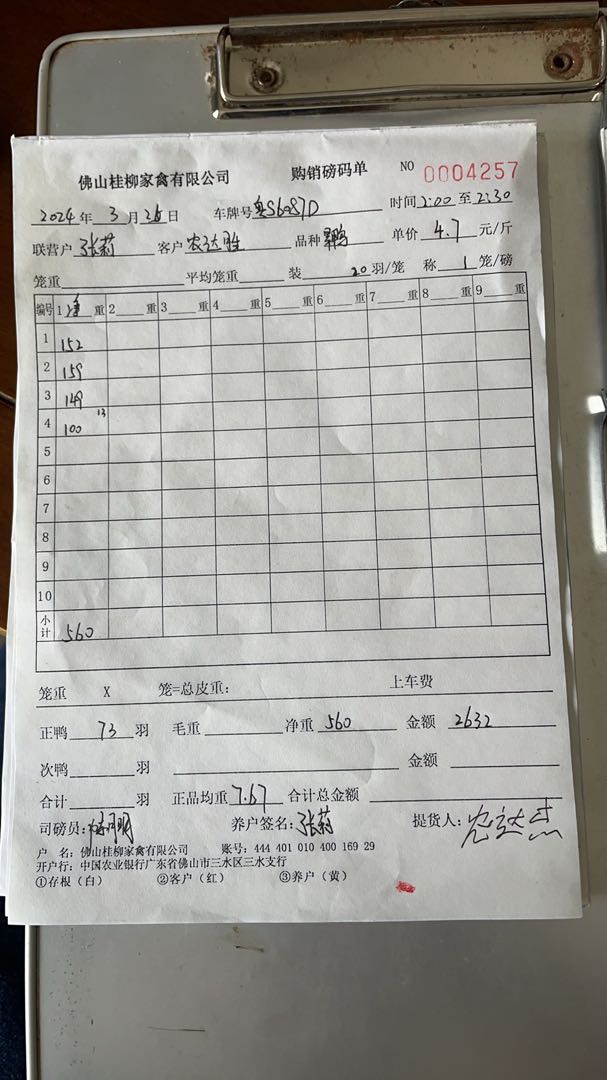 佛山桂柳家禽有限公司 购销磅码单 NO 0004257
2024年 3月 26日 车牌号 粤S6087D 时间 2:00 至 2:30
联营户 张莉 客户 农达胜 品种 单价 4.7 元/斤
笼重 平均笼重 装 20 羽/笼 称 1 笼/磅
编号 1 净 重 2 重 3 重 4 重 5 重 6 重 7 重 8 重 9 重
1 152
2 159
3 149
4 100 13
5
6
7
8
9
10
小计 560
笼重 X 笼=总皮重: 上车费
正鸭 73 羽 毛重 净重 560 金额 2632
次鸭 羽 金额
合计 羽 正品均重 7.67 合计总金额
司磅员: 养户签名: 张莉 提货人:
户 名: 佛山桂柳家禽有限公司 账号: 444 401 010 400 169 29
开户行: 中国农业银行广东省佛山市三水区三水支行
①存根(白) ②客户(红) ③养户(黄)